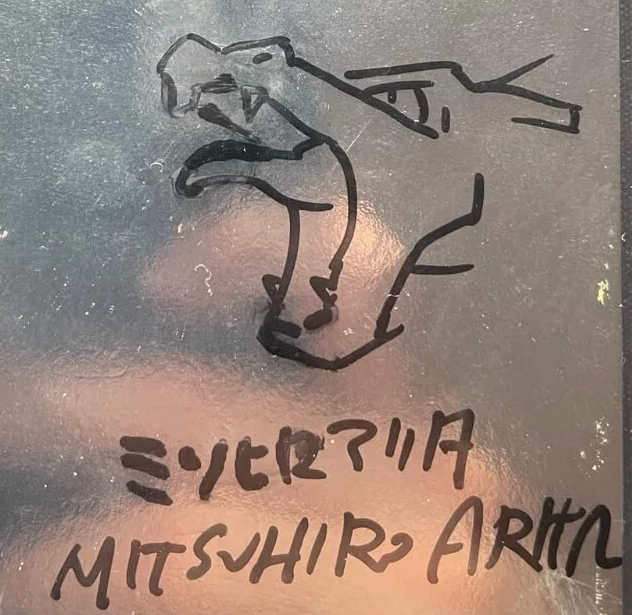 ミツヒロアリタ
MITSUHIRO ARITA